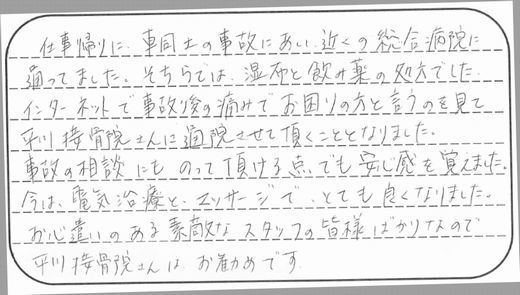 仕事帰りに、車同士の事故にあい、近くの総合病院に
通ってました。そちらでは、湿布と飲み薬の処方でした。
インターネットで事故後の痛みでお困りの方と言うのを見て
平川接骨院さんに通院させて頂くこととなりました。
事故の相談にものって頂ける点でも安心感を覚えました。
今は、電気治療と、マッサージで、とても良くなりました。
お心遣いのある素敵なスタッフの皆様ばかりなので
平川接骨院さんは、お勧めです。